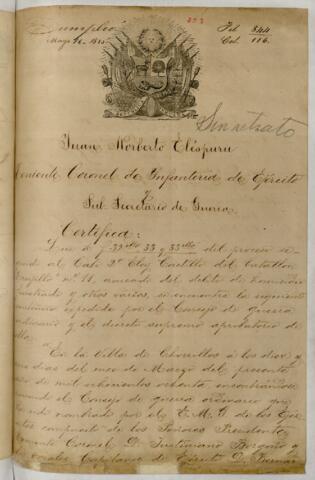 Cumplió
Mayo 16. 1880
223
Fil 844
Cal. 116.
Sin retrato
Juan Norberto Eléspuru
Teniente Coronel de Infantería de Ejército
y
Sub Secretario de Guerra.
Certifica:
Que á f 32 vto 33 y 33 vto del proceso se-
guido al Cabo 2º Eloy Castillo del Batallon
Trujillo nº 11, acusado del delito de homicidio
frustrado y otros varios, se encuentra la siguiente
sentencia expedida por el Consejo de guerra
ordinario y el decreto supremo aprobatorio de
ella.
"En la Villa de Chorrillos á los diez y
dias del mes de Marzo del presente
año de mil ochocientos ochenta encontrándose
reunido el Consejo de guerra ordinario que
nombrado por el E. M. G. de los Ejér-
citos compuesto de los Señores Presidente
Coronel D. Justiniano Borgoño y
los vocales Capitanes de Ejército D.